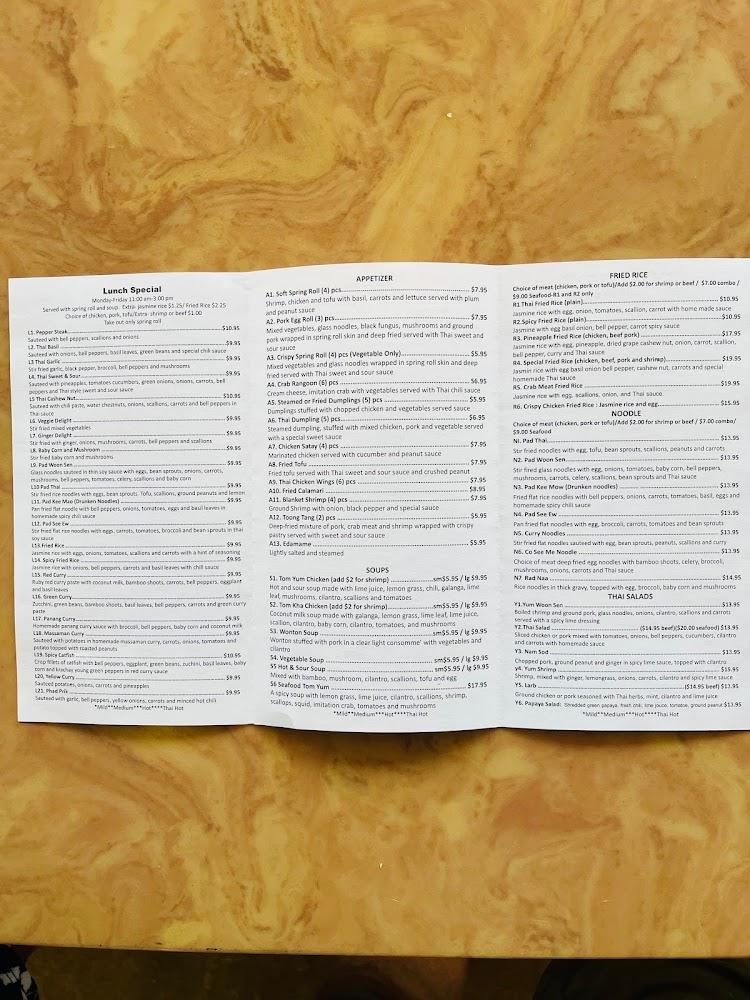 Lunch Special
Monday-Friday 11:00 am-3:00 pm
Served with spring roll and soup. Extra- jasmine rice $1.25/ Fried Rice $2.25
Choice of chicken, pork, tofu/Extra- shrimp or beef $1.00
Take out only spring roll
L1. Pepper Steak $10.95
Sauteed with bell peppers, scallions and onions
L2. Thai Basil $9.95
Sauteed with onions, bell peppers, basil leaves, green beans and special chili sauce
L3 Thai Garlic $9.95
Stir fried garlic, black pepper, broccoli, bell peppers and mushrooms
L4. Thai Sweet & Sour $9.95
Sauteed with pineapples, tomatoes cucumbers, green onions, onions, carrots, bell
peppers and Thai style sweet and sour sauce
L5 Thai Cashew Nut $10.95
Sauteed with chili paste, water chestnuts, onions, scallions, carrots and bell peppers in
Thai sauce
L6. Veggie Delight $9.95
Stir fried mixed vegetables
L7. Ginger Delight $9.95
Stir fried with ginger, onions, mushrooms, carrots, bell peppers and scallions
L8. Baby Corn and Mushroom $9.95
Stir fried baby corn and mushrooms
L9. Pad Woon Sen $9.95
Glass noodles sauteed in thin soy sauce with eggs, bean sprouts, onions, carrots,
mushrooms, bell peppers, tomatoes, celery, scallions and baby corn
L10 Pad Thai $9.95
Stir fried rice noodles with eggs, bean sprouts. Tofu, scallions, ground peanuts and lemon
L11. Pad Kee Mao (Drunken Noodles) $9.95
Pan fried flat noodle with bell peppers, onions, tomatoes, eggs and basil leaves in
homemade spicy chili sauce
L12. Pad See Ew $9.95
Stir fried flat rice noodles with eggs, carrots, tomatoes, broccoli and bean sprouts in thai
soy sauce
L13. Fried Rice $9.95
Jasmine rice with eggs, onions, tomatoes, scallions and carrots with a hint of seasoning
L14. Spicy Fried Rice $9.95
Jasmine rice with onions, bell peppers, carrots and basil leaves with chili sauce
L15. Red Curry $9.95
Ruby red curry paste with coconut milk, bamboo shoots, carrots, bell peppers, eggplant
and basil leaves
L16. Green Curry $9.95
Zucchini, green beans, bamboo shoots, basil leaves, bell peppers, carrots and green curry
paste
L17. Panang Curry $9.95
Homemade panang curry sauce with broccoli, bell peppers, baby corn and coconut milk
L18. Massaman Curry $9.95
Sauteed with potatoes in homemade massaman curry, carrots, onions, tomatoes and
potato topped with roasted peanuts
L19. Spicy Catfish $10.95
Crisp fillets of catfish with bell peppers, eggplant, green beans, zuchini, basil leaves, baby
corn and krachay young green peppers in red curry sauce
L20, Yellow Curry $9.95
Sauteed potatoes, onions, carrots and pineapples
L21. Phad Prik $9.95
Sauteed with garlic, bell peppers, yellow onions, carrots and minced hot chili
*Mild**Medium***Hot****Thai Hot
APPETIZER
A1. Soft Spring Roll (4) pcs $7.95
Shrimp, chicken and tofu with basil, carrots and lettuce served with plum
and peanut sauce
A2. Pork Egg Roll (3) pcs $7.95
Mixed vegetables, glass noodles, black fungus, mushrooms and ground
pork wrapped in spring roll skin and deep fried served with Thai sweet and
sour sauce
A3. Crispy Spring Roll (4) pcs (Vegetable Only) $5.95
Mixed vegetables and glass noodles wrapped in spring roll skin and deep
fried served with Thai sweet and sour sauce
A4. Crab Rangoon (6) pcs $6.95
Cream cheese, imitation crab with vegetables served with Thai chili sauce
A5. Steamed or Fried Dumplings (5) pcs $5.95
Dumplings stuffed with chopped chicken and vegetables served
A6. Thai Dumpling (5) pcs $6.95
Steamed dumpling, stuffed with mixed chicken, pork and vegetable served
with a special sweet sauce
A7. Chicken Satay (4) pcs $7.95
Marinated chicken served with cucumber and peanut sauce
A8. Fried Tofu $7.95
Fried tofu served with Thai sweet and sour sauce and crushed peanut
A9. Thai Chicken Wings (6) pcs $7.95
A10. Fried Calamari $8.95
A11. Blanket Shrimp (4) pcs $7.95
Ground Shrimp with onion, black pepper and special sauce
A12. Toong Tang (2) pcs $5.95
Deep-fried mixture of pork, crab meat and shrimp wrapped with crispy
pastry served with sweet and sour sauce
A13. Edamame $5.95
Lightly salted and steamed
SOUPS
S1. Tom Yum Chicken (add $2 for shrimp) sm$5.95 / lg $9.95
Hot and sour soup made with lime juice, lemon grass, chili, galanga, lime
leaf, mushrooms, cilantro, scallions and tomatoes
S2. Tom Kha Chicken (add $2 for shrimp) sm$5.95 / lg $9.95
Coconut milk soup made with galanga, lemon grass, lime leaf, lime juice,
scallion, cilantro, baby corn, cilantro, tomatoes, and mushrooms
S3. Wonton Soup sm$5.95 / lg $9.95
Wonton stuffed with pork in a clear light consomme' with vegetables and
cilantro
S4. Vegetable Soup sm$5.95 / lg $9.95
S5 Hot & Sour Soup sm$5.95 / lg $9.95
Mixed with bamboo, mushroom, cilantro, scallions, tofu and egg
S6 Seafood Tom Yum $17.95
A spicy soup with lemon grass, lime juice, cilantro, scallions, shrimp,
scallops, squid, imitation crab, tomatoes and mushrooms
*Mild**Medium***Hot****Thai Hot
FRIED RICE
Choice of meat (chicken, pork or tofu)/Add $2.00 for shrimp or beef / $7.00 combo /
$9.00 Seafood-R1 and R2 only
R1 Thai Fried Rice (plain) $10.95
Jasmine rice with egg, onion, tomatoes, scallion, carrot with home made sauce
R2.Spicy Fried Rice (plain) $10.95
Jasmine with egg basil onion, bell pepper, carrot spicy sauce
R3. Pineapple Fried Rice (chicken, beef pork) $17.95
Jasmine rice with egg, pineapple, dried grape cashew nut, onion, carrot, scallion,
bell pepper, curry and Thai sauce
R4. Special Fried Rice (chicken, beef, pork and shrimp) $19.95
Jasmin rice with egg basil onion bell pepper, cashew nut, carrots and special
homemade Thai sauce
R5. Crab Meat Fried Rice $19.95
Jasmine rice with egg, scallions, onion, and Thai sauce.
R6. Crispy Chicken Fried Rice : Jasmine rice and egg $15.95
NOODLE
Choice of meat (chicken, pork or tofu)/Add $2.00 for shrimp or beef / $7.00 combo/
$9.00 Seafood
N1. Pad Thai $13.95
Stir fried noodles with egg, tofu, bean sprouts, scallions, peanuts and carrots
N2. Pad Woon Sen $13.95
Stir fried glass noodles with egg, onions, tomatoes, baby corn, bell peppers,
mushrooms, carrots, celery, bean sprouts and Thai sauce
N3. Pad Kee Mow (Drunken noodles) $13.95
Fried flat rice noodles with bell peppers, onions, carrots, tomatoes, basil, eggs and
homemade spicy chili sauce
N4. Pad See Ew $13.95
Pan fried flat noodles with egg, broccoli, carrots, tomatoes and bean sprouts
N5. Curry Noodles $13.95
Stir fried noodles sauteed with egg, bean sprouts, peanuts, scallions and curry
N6. Co See Me Noodle $13.95
Choice of meat deep fried egg noodles with bamboo shoots, celery, broccoli,
mushrooms, onions, carrots and Thai sauce
N7. Rad Naa $14.95
Rice noodles in thick gravy, topped with egg, broccoli, baby corn and mushrooms
THAI SALADS
Y1.Yum Woon Sen $13.95
Boiled shrimp and ground pork, glass noodles, onions, cilantro, scallions and carrots
served with a spicy lime dressing
Y2.Thai Salad ($14.95 beef)($20.00 seafood) $13.95
Sliced chicken or pork mixed with tomatoes, onions, bell peppers, cucumbers, cilantro
and carrots with homemade sauce
Y3. Nam Sod $13.95
Chopped pork, ground peanut and ginger in spicy lime sauce, topped with cilantro
Y4. Yum Shrimp $15.95
Shrimp, mixed with ginger, lemongrass, onions, carrots, cilantro and spicy lime sauce
Y5. Larb ($14.95 beef) $13.95
Ground chicken or pork seasoned with Thai herbs, mint, cilantro and lime juice
Y6. Papaya Salad: Shredded green papaya, fresh chili, lime jouice, tomatoe, ground peanut $13.95
*Mild**Medium***Hot****Thai Hot